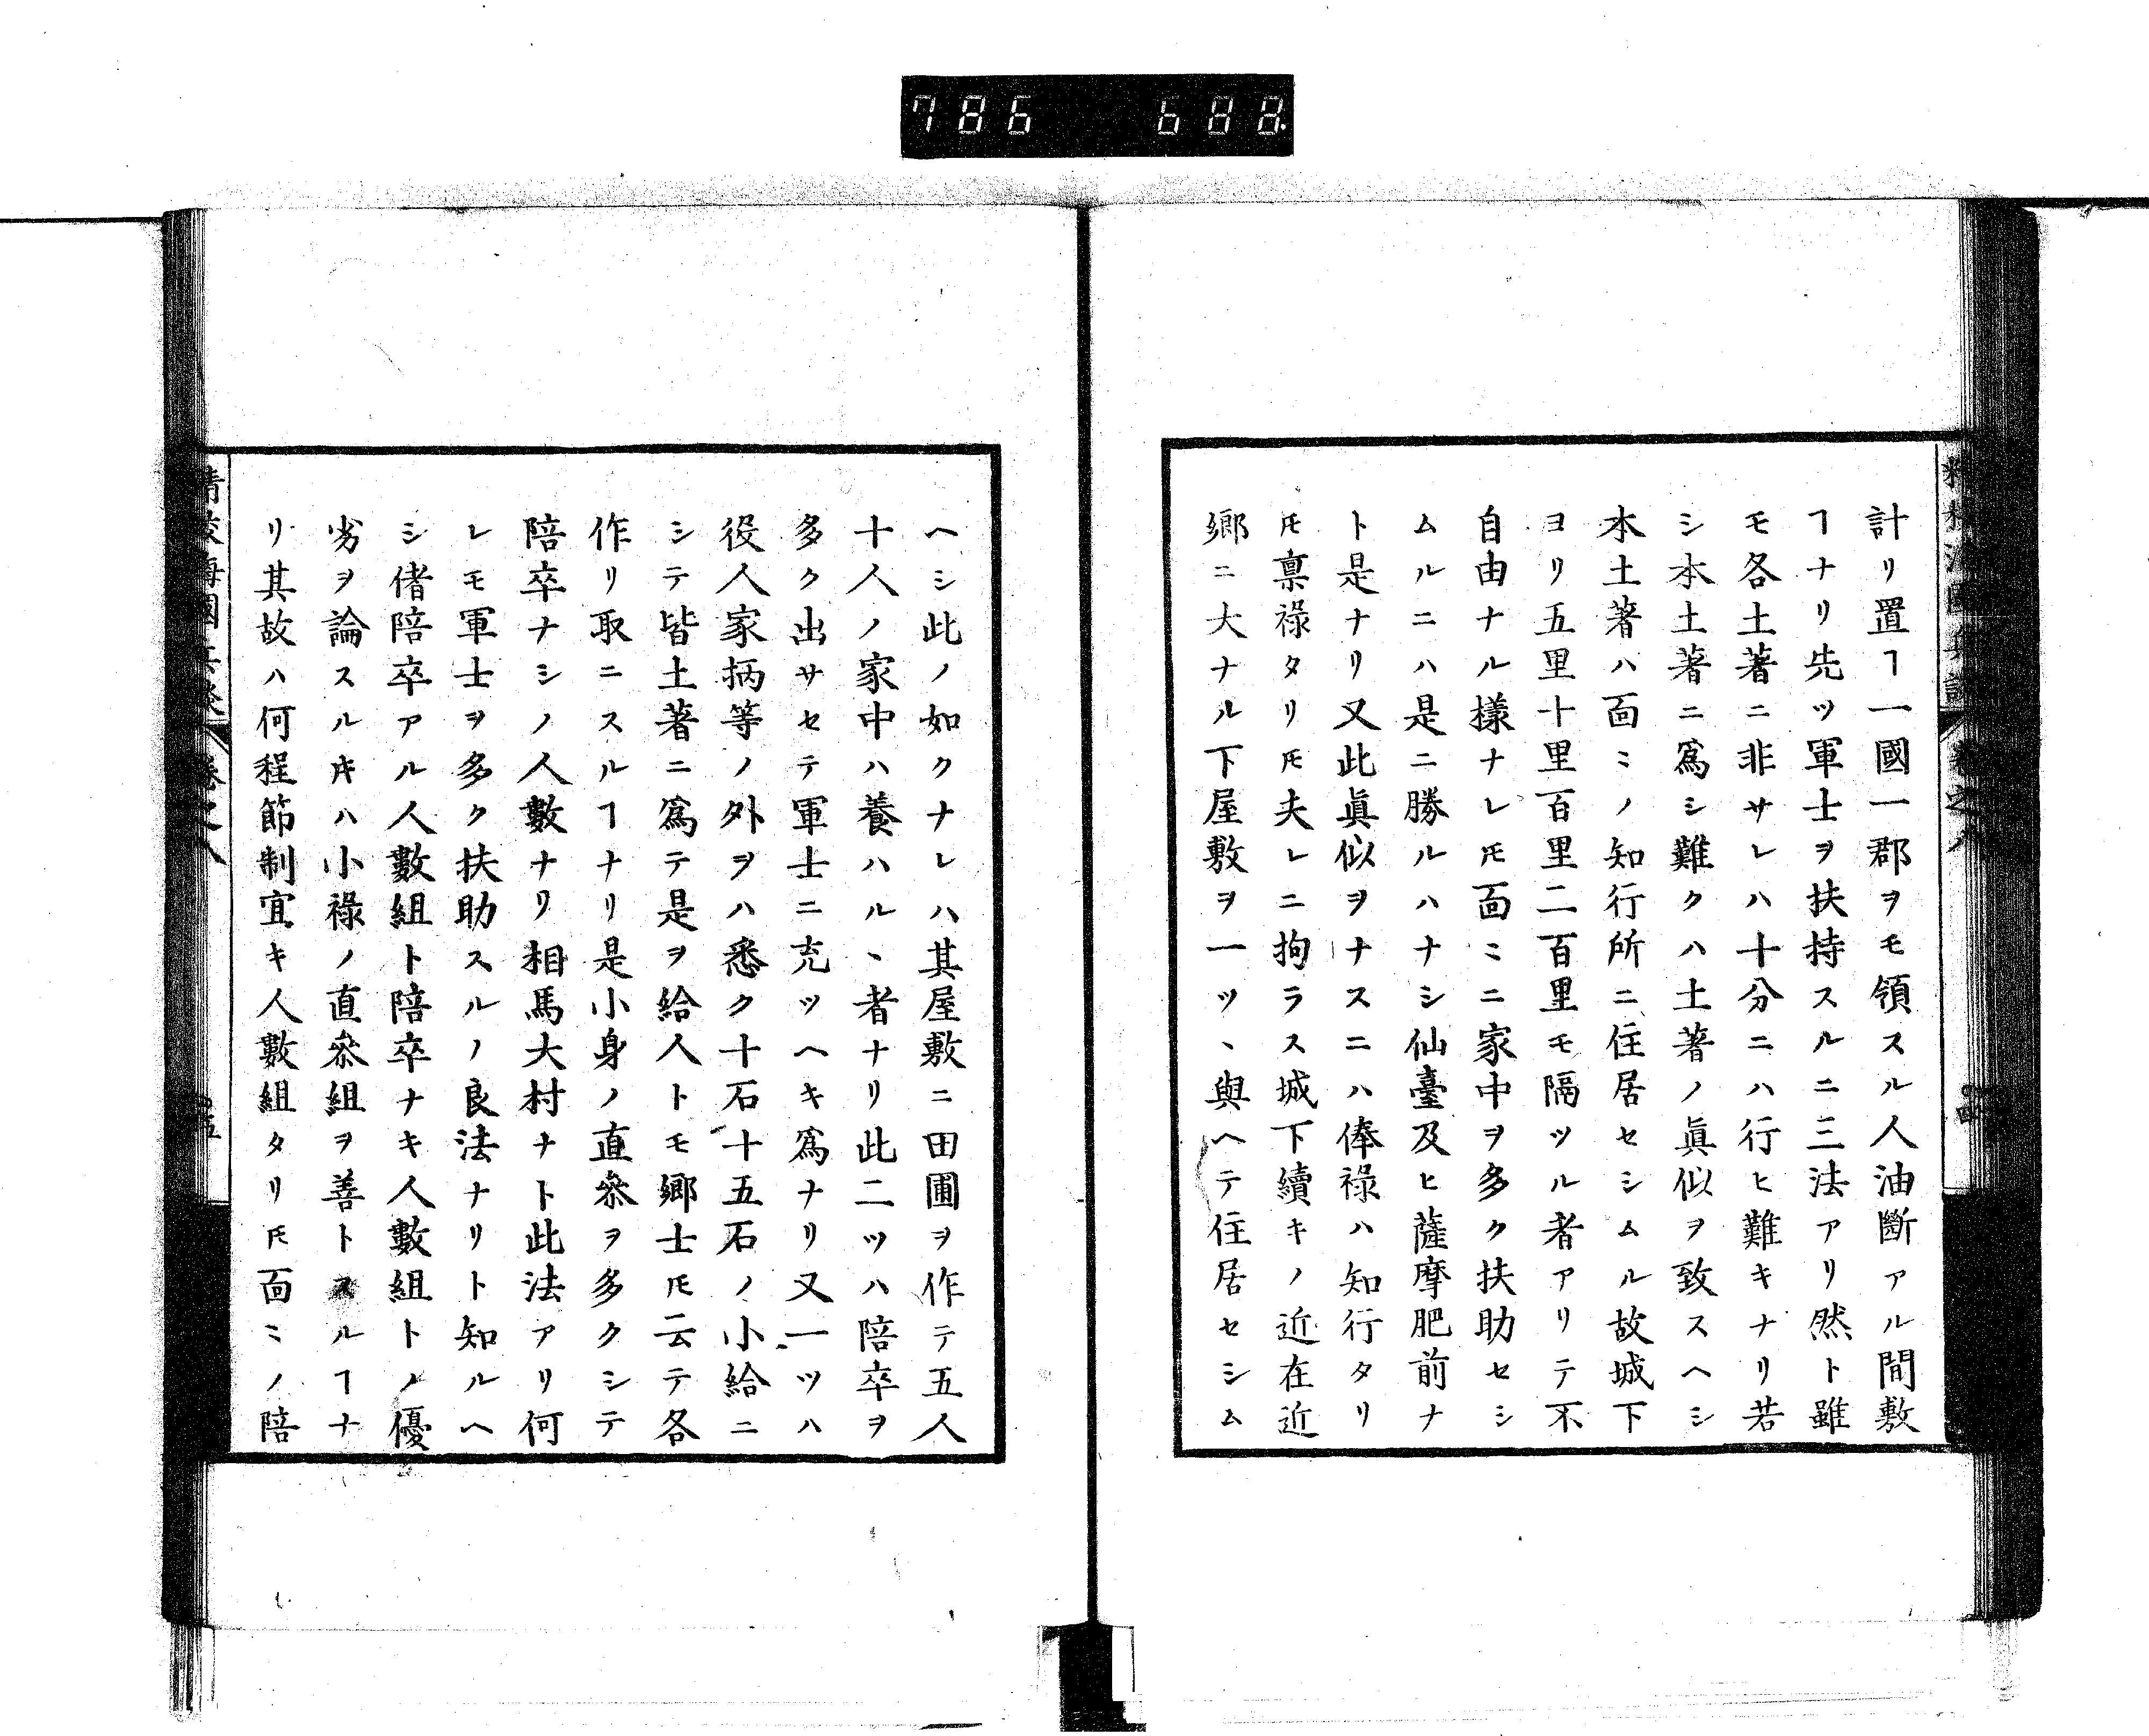 786 688
計リ置ヿ一國一郡ヲモ領スル人油斷アル間敷
ヿナリ先ツ軍士ヲ扶持スルニ三法アリ然ト雖
モ各土著ニ非サレハ十分ニハ行ヒ難キナリ若
シ本土著ニ爲シ難クハ土著ノ眞似ヲ致スヘシ
本土著ハ面ミノ知行所ニ住居セシムル故城下
ヨリ五里十里百里二百里モ隔ツル者アリテ不
自由ナル樣ナレ𪜈面ミニ家中ヲ多ク扶助セシ
ムルニハ是ニ勝ルハナシ仙臺及ヒ薩摩肥前ナ
ト是ナリ又此眞似ヲナスニハ俸祿ハ知行タリ
𪜈禀祿タリ𪜈夫レニ拘ラス城下續キノ近在近
鄉ニ大ナル下屋敷ヲ一ツヽ與ヘテ住居セシム
ヘシ此ノ如クナレハ其屋敷ニ田圃ヲ作テ五人
十人ノ家中ハ養ハルヽ者ナリ此二ツハ陪卒ヲ
多ク出サセテ軍士ニ充ツヘキ爲ナリ又一ツハ
役人家柄等ノ外ヲハ悉ク十石十五石ノ小給ニ
シテ皆土著ニ爲テ是ヲ給人トモ鄉士𪜈云テ各
作リ取ニスルヿナリ是小身ノ直叅ヲ多クシテ
陪卒ナシノ人數ナリ相馬大村ナト此法アリ何
レモ軍士ヲ多ク扶助スルノ良法ナリト知ルヘ
シ偖陪卒アル人數組ト陪卒ナキ人數組トノ優
劣ヲ論スルキハ小祿ノ直叅組ヲ善トスルヿナ
リ其故ハ何程節制宜キ人數組タリ𪜈面ミノ陪
精校海國兵談 卷之八